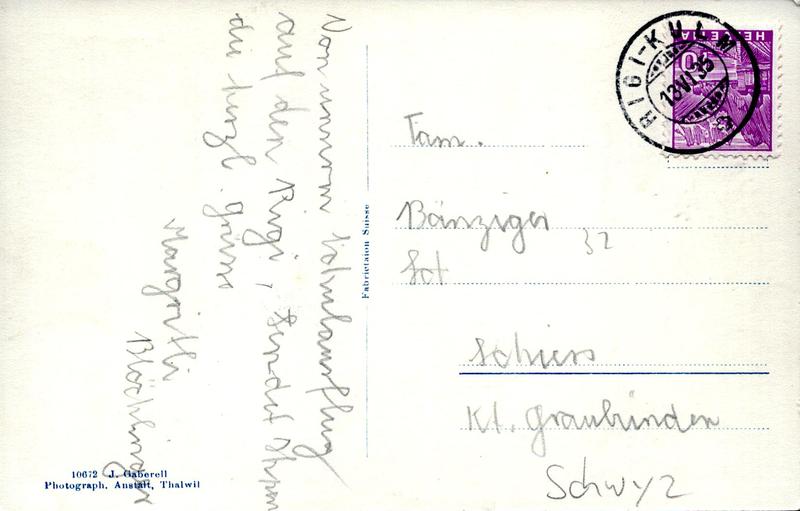 Von unserem Schulausflug
auf den Rigi, sendet Ihnen
die herzl. Grüsse
Margritli
Blöchlinger
Fabrictaion Suisse
10672 J. Gaberell
Photograph. Anstalt, Thalwil
RIGI-KULM
13.VI.35
HELVETIA
10
Fam.
Bänziger
32
Schiers
Kt. Graubünden
Schwyz